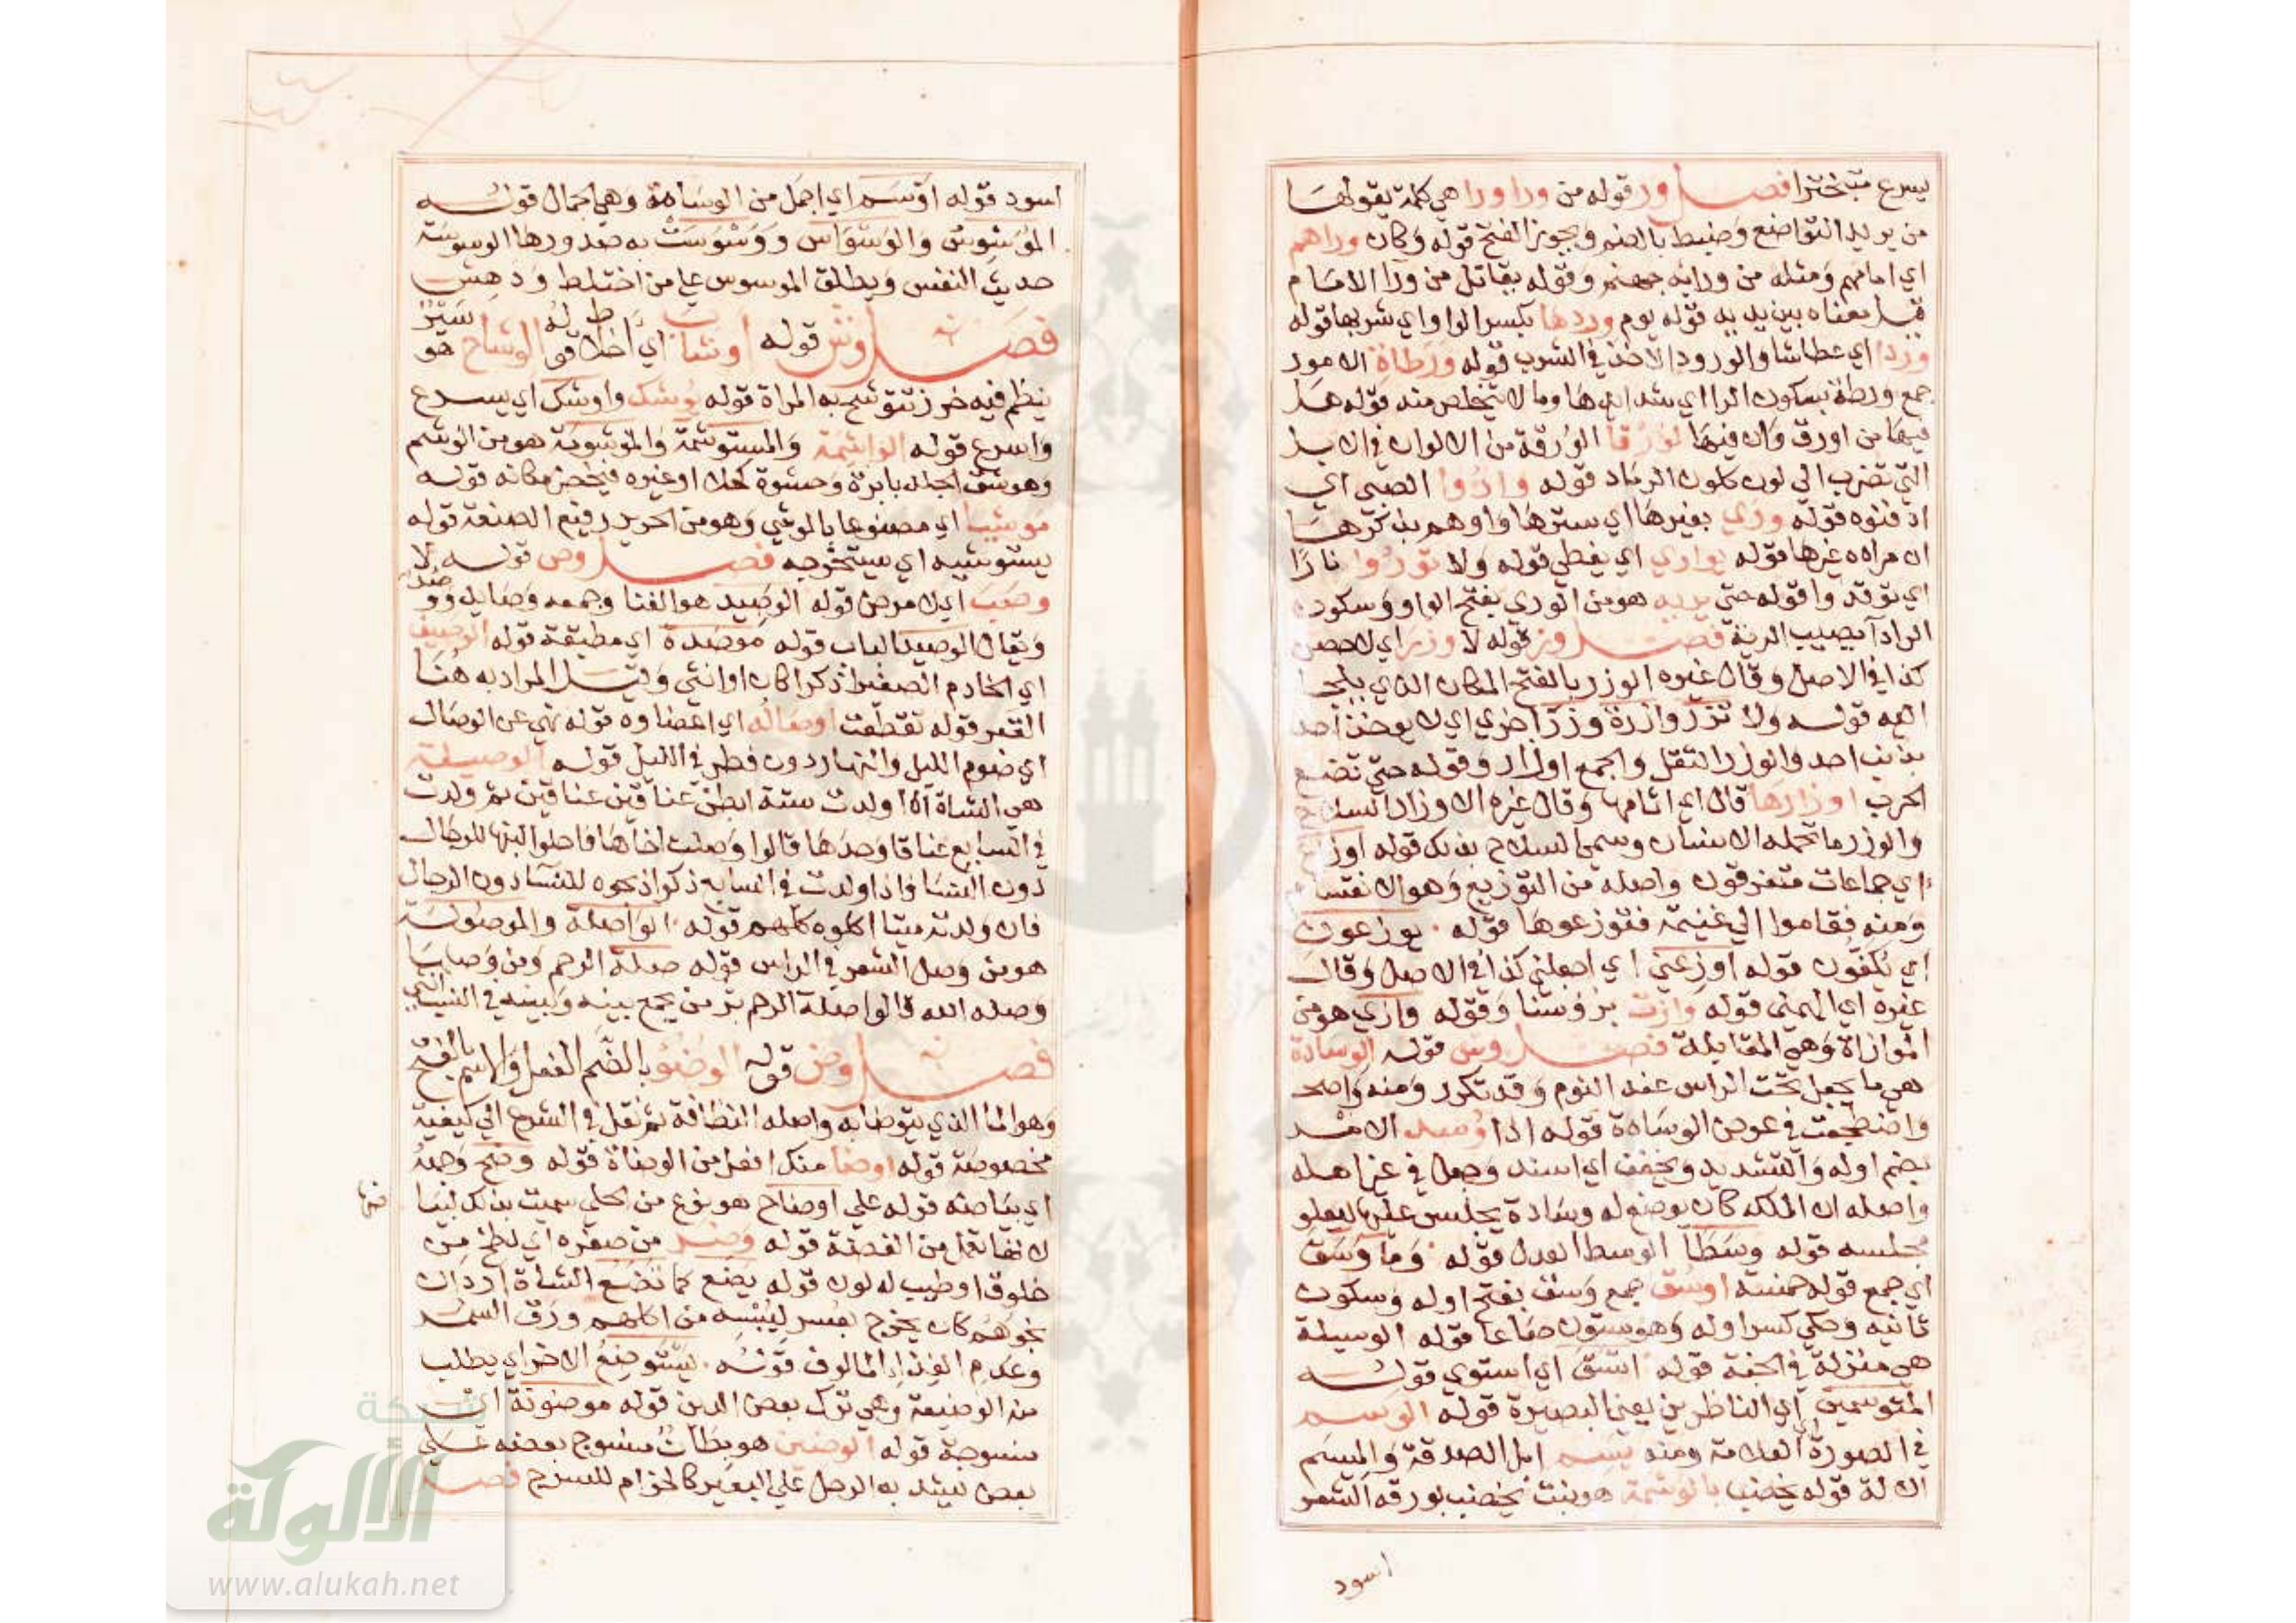 يسرع متبخترا فصل ور قوله من ورا ورا هي كلمة يقولها
من يريد التواضع وضبط بالضم ويجوز الفتح قوله وكان وراهم
اي امامهم ومثله من ورايه جهنم وقوله يقاتل من ورا الامام
قيل معناه بين يديه قوله يوم وردها بكسر الواو اي شربها قوله
وردا اي عطاشا والورود الاخذ في الشرب قوله ورطاة الامور
جمع ورطة بسكون الرا اي شدايدها وما لا يتخلص منه قوله هل
فيها من اورق وان فيها لورقا الورقة من الالوان في الابل
التي تضرب الي لون كلون الرماد قوله واروا الصبي اي
ادفنوه قوله وري بغيرها اي سترها واوهم بذكرها
ان مراده غيرها قوله يواري اي يغطي قوله ولا توروا نارا
اي توقدوا قوله حتي يريه هو من الوري بفتح الواو وسكون
الرا دا يصيب الرية فصل وز قوله لا وزر اي لا حصن
كذا في الاصل وقال غيره الوزر بالفتح المكان الذي يلجا
اليه قوله ولا تزر وازرة وزر اخري اي لا يوخذ احد
بذنب احد والوزر الثقل والجمع اوزار وقوله حتي تضع
الحرب اوزارها قال اي اثامها وقال غيره الاوزار السلاح
والوزر ما تحمله الانسان وسمي السلاح بذلك قوله اوزاع
اي جماعات متفرقون واصله من التوزيع وهو الانقسام
ومنه فقاموا الي غنيمة فتوزعوها قوله يوزعون
اي يكفون قوله اوزعني اي اجعلني كذا في الاصل وقال
غيره اي الهمني قوله وازت بروسنا وقوله وازي هو من
الموازاة وهي المقابلة فصل وس قوله الوسادة
هي ما يجعل تحت الراس عند النوم وقد تكرر ومنه واضح
واضطجعت في عرض الوسادة قوله اذا وسد الامر
بضم اوله والتشديد ويخفف اي اسند وجعل في غير اهله
واصله ان الملك كان يوضع له وسادة يجلس عليها ليعلو
مجلسه قوله وسطا الوسط العدل قوله وما وسق
اي جمع قوله خمسة اوسق جمع وسق بفتح اوله وسكون
ثانيه وحكي كسر اوله وهو ستون صاعا قوله الوسيلة
هي منزلة في الجنة قوله اتسق اي استوي قوله
المتوسمين اي الناظرين يعني البصيرة قوله الوسم
في الصورة اي العلامة ومنه يسم ابل الصدقة والميسم
الالة قوله يخضب بالوسمة هو نبت يخضب بورقه الشعر
اسود
اسود قوله اوسم اي اجمل من الوسامة وهي الجمال قوله
الموسوس والوسواس ووسوست به صدورها الوسوسة
حديث النفس ويطلق الموسوس علي من اختلط ودهش
فصل وش قوله اوشاب اي اخلاط قوله الوشاح هو سير
ينظم فيه خرز تتوشح به المراة قوله يوشك واوشك اي يسرع
واسرع قوله الواشمة والمستوشمة والموشومة هو من الوشم
وهو شق الجلد بابرة وحشوه كحلا او غيره فيخضر مكانه قوله
موشيا اي مصنوعا بالوشي وهو من الحرير رفيع الصنعة قوله
يستوشيه اي يستخرجه فصل وص قوله لا
وصب اي لا مرض قوله الوصيد هو الفنا وجمعه وصايد ووصد
ويقال الوصيد الباب قوله موصدة اي مطبقة قوله الوصيف
اي الخادم الصغير ذكرا كان او انثي وقيل المراد به هنا
القصر قوله تقطعت اوصاله اي اعضاوه قوله نهي عن الوصال
اي صوم الليل والنهار دون فطر في الليل قوله الوصيلة
هي الشاة اذا ولدت ستة ابطن عناقين عناقين ثم ولدت
في السابع عناقا وجديا قالوا وصلت اخاها فاحلوا لبنها للرجال
دون النسا واذا ولدت في السابع ذكرا ذبحوه للنسا دون الرجال
فان ولدته ميتا اكلوه كلهم قوله الواصلة والموصولة
هو من وصل الشعر في الراس قوله صلة الرحم ومن وصلها
وصله الله فالواصلة الرحم بر من يجمع بينه وبينه في النسب
فصل وض قوله الوضو بالضم الفعل والاسم بالفتح
وهو الما الذي يتوضا به واصله النظافة ثم نقل في الشرع الي كيفية
مخصوصة قوله اوضا منك افعل من الوضاة قوله وضح وجهه
اي بياضه قوله علي اوضاح هو نوع من الحلي سميت بذلك لبيا
ضها
لانها تعمل من الفضة قوله وضر من صفرة اي لطخ من
خلوق او طيب له لون قوله يضع كما تضع الشاة اراد ان
نجوهم كان يخرج بعسر ليبسه من اكلهم ورق السمر
وعدم الغذا المالوف قوله يستوضع الاخر اي يطلب
منه الوضيعة وهي ترك بعض الدين قوله موضونة اي
منسوجة قوله الوضين هو بطان منسوج بعضه علي
بعض يشد به الرحل علي البعير كالحزام للسرج فصل
شبكة
الألوكة
www.alukah.net